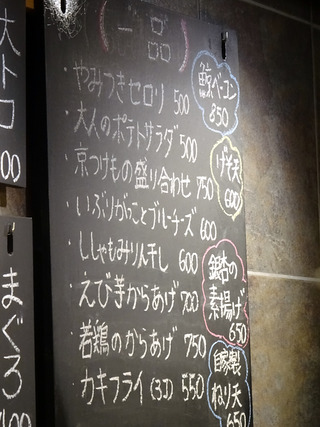 大トロ
00
まぐろ
400
(一品)
・やみつきセロリ 500
・大人のポテトサラダ 500
・京つけもの盛り合わせ 750
・いぶりがっことブルーチーズ 600
・ししゃもみりん干し 600
・えび芋からあげ 700
・若鶏のからあげ 750
・カキフライ(3コ) 550
鯨ベーコン
850
げそ天
600
銀杏の
素揚げ
650
自家製
ねり天
650